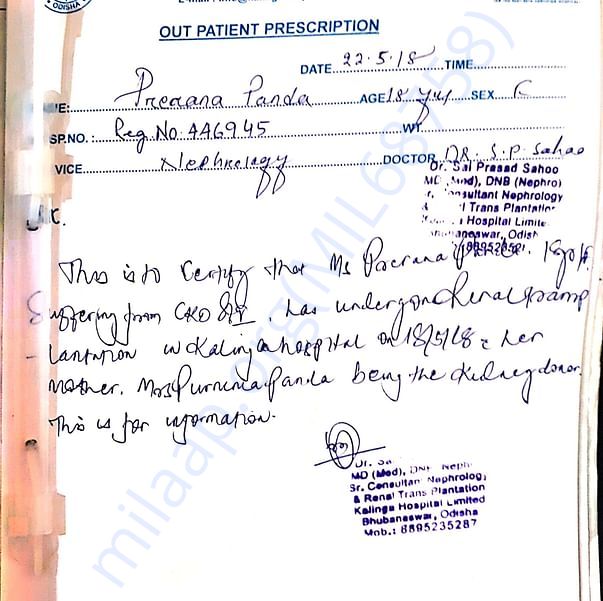 ODISHA
OUT PATIENT PRESCRIPTION
DATE 22.5.18 TIME
E: Prerana Panda AGE 18 yrs SEX F
SP.NO. : Reg. No. 446945 WT.
VICE Nephrology DOCTOR DR. S. P. Sahoo
Dr. Sai Prasad Sahoo
MD (Med), DNB (Nephro)
Consultant Nephrology
Trans Plantation
Hospital Limite
aneswar, Odish
This is to Certify that Ms Prerana
Suffering from CKD , has undergone Renal Transp
lantation in Kalinga hospital on 18/5/18 her
mother, Mrs Purnima Panda being the kidney donor.
This is for information.
MD (Med), DNB Neph
Sr. Consultan Nephrology
& Renal Trans Plantation
Kalinga Hospital Limited
Bhubaneswar, Odisha
Mob.: 8895235287
milaap.org(MIL68758)